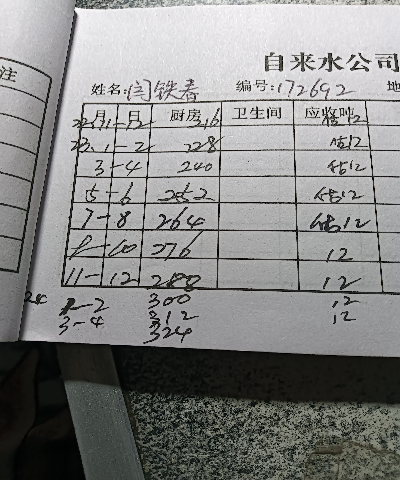 注
自来水公司
姓名:闫铁春 编号:172692 地
月 月 厨房 卫生间 应收吨
22.11-12 216 估12
23.1-2 228 估12
3-4 240 估12
5-6 252 估12
7-8 264 估12
9-10 276 12
11-12 288 12
24 1-2 300 12
3-4 312 12
324